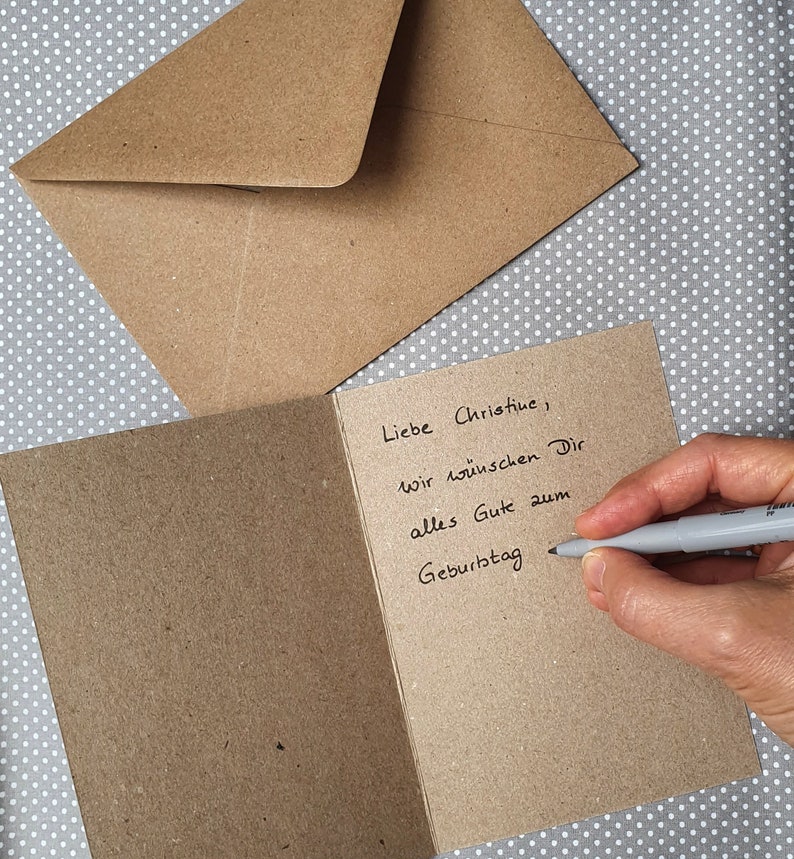 Liebe Christine,
wir wünschen Dir
alles Gute zum
Geburtstag